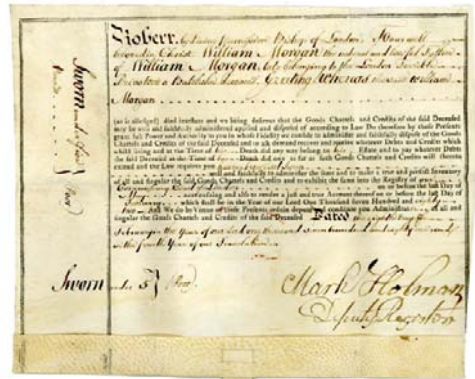 Robert, by divine permission Bishop of London To our well
beloved in Christ William Morgan the natural and lawful Father
of William Morgan, late belonging to the London Invalids
a Batchelor deceased Greeting Whereas the said William
Morgan
(as is alleged) died intestate and we being desirous that the Goods Chattels and Credits of the said Deceased
may be well and faithfully administered applied and disposed of according to Law Do therefore by these Presents
grant full Power and Authority to you in whose Fidelity we confide to administer and faithfully dispose of the Goods
Chattels and Credits of the said Deceased and to ask demand recover and receive whatever Debts and Credits which
whilst living and at the Time of his Death did any way belong to his Estate and to pay whatever Debts
the said Deceased at the Time of his Death did owe so far as such Goods Chattels and Credits will thereto
extend and the Law requires you
well and faithfully to administer the same and to make a true and perfect Inventory
of all and singular the Goods Chattels and Credits and to exhibit the same into the Registry of
Court of on or before the last Day of
and also to render a just and true Account thereof on or before the last Day of
which shall be in the Year of our Lord One Thousand Seven Hundred and eighty
And We do by Virtue of these Presents ordain depute and constitute you Administrator of all and
singular the Goods Chattels and Credits of the said Deceased Dated the Day of
in the Year of our Lord one thousand seven hundred and eighty
in the fourth Year of our Translation
Sworn under 5
Sworn under five
Mark Holman
Deputy Register